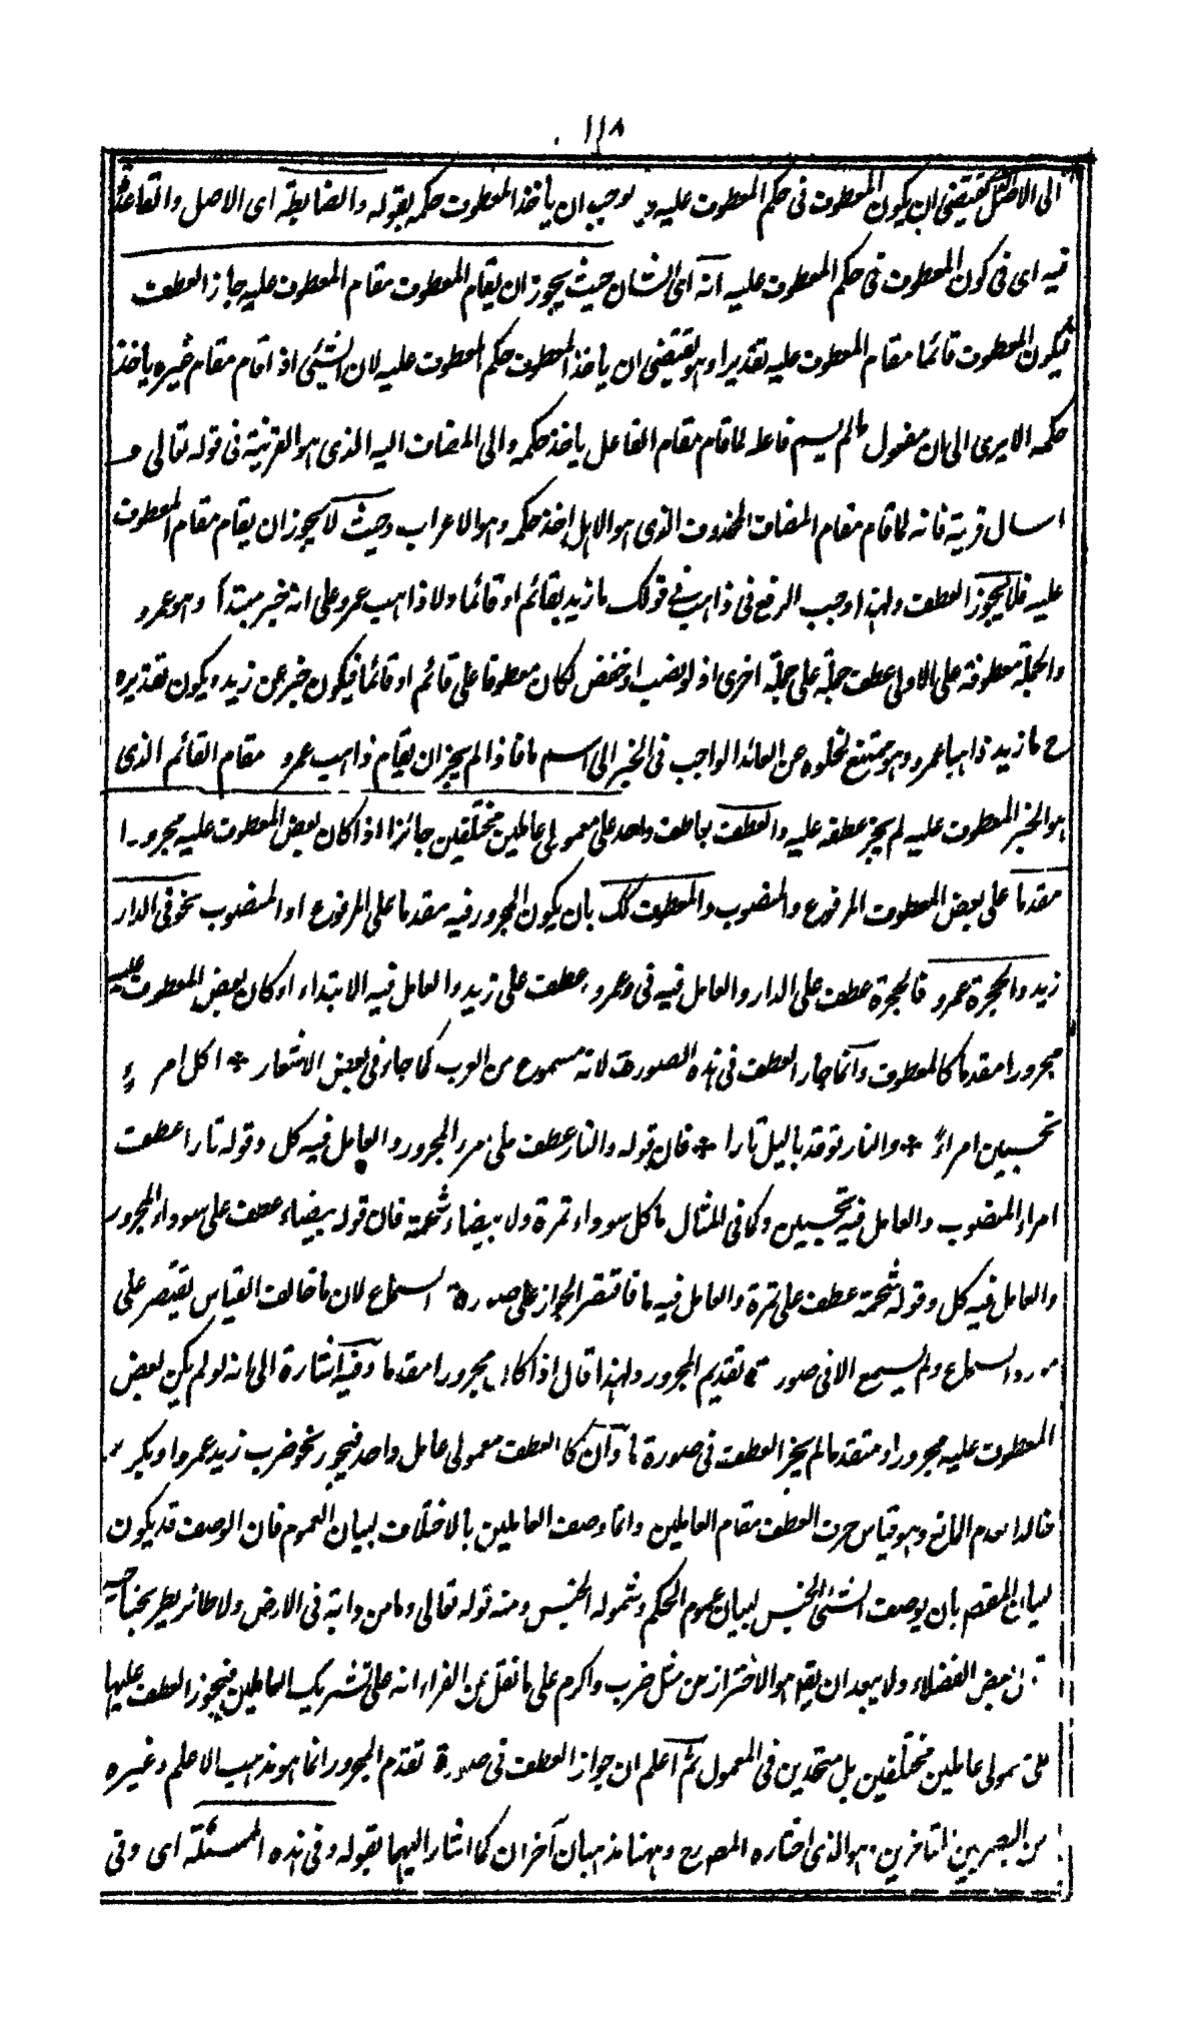 ١١٨
الى الاصل فيقتضى ان يكون المعطوف فى حكم المعطوف عليه و يوجب ان ياخذ المعطوف حكمه بقوله والضابطة اى الاصل والقاعدة
فيه اى فى كون المعطوف فى حكم المعطوف عليه انه اى الشان حيث يجوز ان يقام المعطوف مقام المعطوف عليه جاز العطف
فيكون المعطوف قائما مقام المعطوف عليه تقديرا وهو يقتضى ان ياخذ المعطوف حكم المعطوف عليه لان الشيئ اذ اقام مقام غيره ياخذ
حكمه الا يرى الى ان مفعول مالم يسم فاعله لما قام مقام الفاعل ياخذ حكمه والى المضاف اليه الذى هو القرينة فى قوله تعالى و
اسال قرية فانه لما قام مقام المضاف المحذوف الذى هو الاهل اخذ حكمه وهو الاعراب وحيث لا يجوز ان يقام مقام المعطوف
عليه فلا يجوز العطف ولهذا وجب الرفع فى ذاهب فى قولك ما زيد بقائم او قائما ولا ذاهب عمرو على انه خبر مبتدأ وهو عمرو
والجملة معطوفة على الاولى عطف جملة على جملة اخرى اذ لو نصب او خفض لكان معطوفا على قائم او قائما فيكون خبر عن زيد ويكون تقديره
ح ما زيد ذاهبا عمرو وهو ممتنع لخلوه عن العائد الواجب فى الخبر الى اسم ما فاذا لم يجز ان يقام ذاهب عمرو مقام القائم الذى
هو الخبر المعطوف عليه لم يجز عطفه عليه والعطف بعاطف واحد على معمولى عاملين مختلفين جائز اذا كان بعض المعطوف عليه مجرورا
مقدما على بعض المعطوف المرفوع والمنصوب والمعطوف كك بان يكون المجرور فيه مقدما على المرفوع او المنصوب نحو فى الدار
زيد والحجرة عمرو فالحجرة عطف على الدار والعامل فيه فى وعمرو عطف على زيد والعامل فيه الابتداء او كان بعض المعطوف عليه
مجرورا مقدما كالمعطوف وانما جاز العطف فى هذه الصورة لانه مسموع من العرب كما جاء فى بعض الاشعار * اكل امرءٍ
تحسبين امراءً * والنار توقد بالليل نارا * فان قوله والنار عطف على امرء المجرور والعامل فيه كل وقوله نارا عطف
امراء المنصوب والعامل فيه تحسبين وكما فى المثال ما كل سوداء تمرة ولا بيضاء شحمة فان قوله بيضاء عطف على سوداء المجرور
والعامل فيه كل وقوله شحمة عطف على تمرة والعامل فيه ما فاقتصر الجواز على صورة السماع لان ما خالف القياس يقتصر على
مورد السماع ولم يسمع الا فى صورة تقديم المجرور ولهذا قال اذا كان مجرورا مقدما وفيه اشارة الى انه لو لم يكن بعض
المعطوف عليه مجرورا ومتقدما لم يجز العطف فى صورة ما وان كا العطف معمولى عامل واحد فيجوز نحو ضرب زيد عمروا وبكر
خالدا لعدم المانع وهو قيام حرف العطف مقام العاملين وانما وصف العاملين بالاختلاف لبيان العموم فان الوصف قد يكون
لبيان المقصم بان يوصف الشئ الجنس لبيان عموم الحكم وشموله الجنس ومنه قوله تعالى وما من دابة فى الارض ولا طائر يطير بجناحيه
بعض الفضلاء ولا يبعد ان يقم هو الاحتراز من مثل ضرب واكرم على ما نقل عن الفراء انه على تشريك العاملين فيجوز العطف عليها
على معمولى عاملين مختلفين بل متحدين فى المعمول ثم اعلم ان جواز العطف فى صورة تقدم المجرور انما هو مذهب الاعلم وغيره
من البصريين المتاخرين وهو الذى اختاره المصرح وههنا مذهبان آخران كما اشار اليهما بقوله وفى هذه المسئلة اى وفى